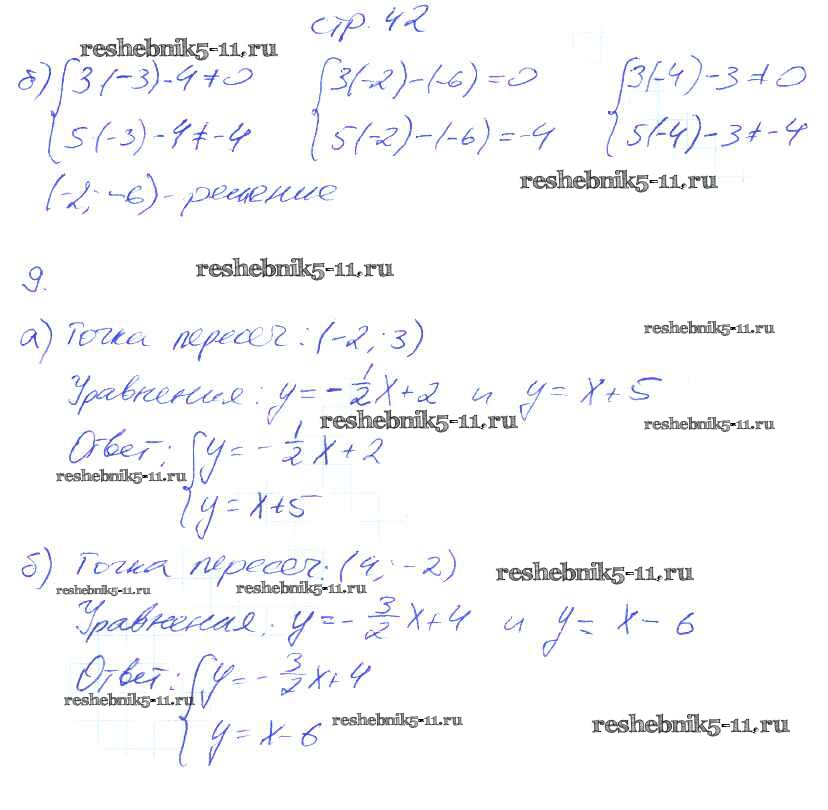 стр. 42
reshebnik5-11.ru
б) { 3(-3)-4≠0 { 3(-2)-(-6)=0 { 3(-4)-3≠0
5(-3)-4≠-4 5(-2)-(-6)=-4 5(-4)-3≠-4
reshebnik5-11.ru
(-2; -6) - решение
reshebnik5-11.ru
9.
а) Точка пересеч: (-2; 3)
reshebnik5-11.ru
Уравнения: y=-1/2x+2 и y=x+5
reshebnik5-11.ru
reshebnik5-11.ru
Ответ: { y=-1/2x+2
reshebnik5-11.ru
y=x+5
б) Точка пересеч: (4; -2)
reshebnik5-11.ru
reshebnik5-11.ru
reshebnik5-11.ru
Уравнения: y=-3/2x+4 и y=x-6
Ответ: { y=-3/2x+4
reshebnik5-11.ru
y=x-6
reshebnik5-11.ru
reshebnik5-11.ru